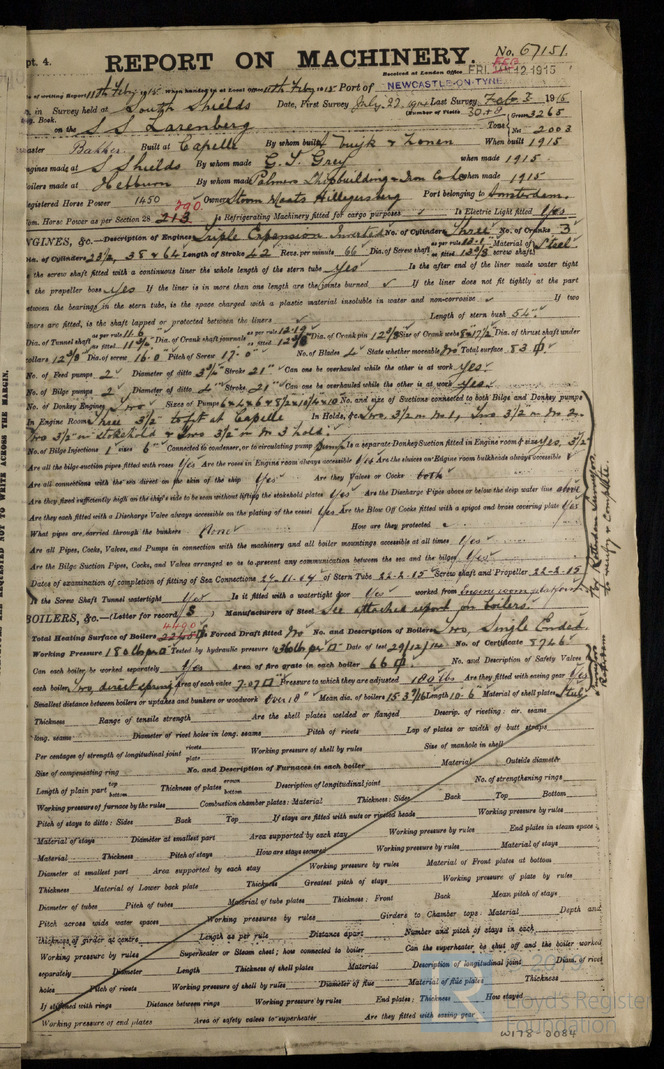 pt. 4.
REPORT ON MACHINERY.
No. 67151
Received at London Office FRI. FEB 12 1915
of writing Report 11th Feby 1915 When handed in at Local Office 11th Feby 1915 Port of NEWCASTLE-ON-TYNE
in Survey held at South Shields Date, First Survey July 27. 1914 Last Survey Feb 3 1915
g. Book. (Number of Visits 30+8)
on the S S Zarenberg Tons Gross 3265 Net 2003
aster Bakker. Built at Capelle By whom built Vuijk & Zonen When built 1915
ngines made at S Shields By whom made G. T. Grey when made 1915.
oilers made at Hebburn By whom made Palmers Shipbuilding & Iron Co Ld when made 1915
egistered Horse Power 1450 Owners Stoom Maats Hillegersberg Port belonging to Amsterdam.
om. Horse Power as per Section 28 213 290. Is Refrigerating Machinery fitted for cargo purposes ✓ Is Electric Light fitted Yes
NGINES, &c.—Description of Engines Triple Expansion Inverted No. of Cylinders Three No. of Cranks 3
Dia. of Cylinders 23 1/2, 38 & 64 Length of Stroke 42 Revs. per minute 66 Dia. of Screw shaft as per rule 13.1 as fitted 13 5/8 Material of screw shaft Steel
the screw shaft fitted with a continuous liner the whole length of the stern tube Yes Is the after end of the liner made water tight
the propeller boss Yes If the liner is in more than one length are the joints burned ✓ If the liner does not fit tightly at the part
between the bearings in the stern tube, is the space charged with a plastic material insoluble in water and non-corrosive ✓ If two
liners are fitted, is the shaft lapped or protected between the liners Length of stern bush 54"
Dia. of Tunnel shaft as per rule 11.6 as fitted 11 3/4 Dia. of Crank shaft journals as per rule 12.19 as fitted 12 5/8 Dia. of Crank pin 12 5/8 Size of Crank webs Dia. of thrust shaft under
collars 12 5/8 Dia. of screw 16.0 Pitch of Screw 17.0" No. of Blades 4 State whether moveable No Total surface 83
No. of Feed pumps 2 Diameter of ditto 3 1/2" Stroke 21" Can one be overhauled while the other is at work Yes
No. of Bilge pumps 2 Diameter of ditto 4" Stroke 21" Can one be overhauled while the other is at work Yes.
No. of Donkey Engines Two Sizes of Pumps No. and size of Suctions connected to both Bilge and Donkey pumps
In Engine Room Three 3 1/2 to fit at Capelle In Holds, &c. Two 3 1/2 in No 1, Two 3 1/2 in No 2.
Two 3 1/2" in stokehold & Two 3 1/2" in No 3 hold.
No. of Bilge Injections 1 sizes 6" Connected to condenser, or to circulating pump Pump Is a separate Donkey Suction fitted in Engine room & size Yes, 3 1/2
Are all the bilge suction pipes fitted with roses Yes Are the roses in Engine room always accessible Yes Are the sluices on Engine room bulkheads always accessible ✓
Are all connections with the sea direct on the skin of the ship Yes Are they Valves or Cocks both
Are they fixed sufficiently high on the ship's side to be seen without lifting the stokehold plates Yes Are the Discharge Pipes above or below the deep water line above
Are they each fitted with a Discharge Valve always accessible on the plating of the vessel Yes Are the Blow Off Cocks fitted with a spigot and brass covering plate Yes
What pipes are carried through the bunkers None How are they protected
Are all Pipes, Cocks, Valves, and Pumps in connection with the machinery and all boiler mountings accessible at all times Yes
Are the Bilge Suction Pipes, Cocks, and Valves arranged so as to prevent any communication between the sea and the bilges Yes
Dates of examination of completion of fitting of Sea Connections 24-11-14 of Stern Tube 22-2-15 Screw shaft and Propeller 22-2-15
Is the Screw Shaft Tunnel watertight Yes Is it fitted with a watertight door Yes worked from Engine room platform
By Rotterdam Surveyors to verify & complete.
BOILERS, &c.—(Letter for record S) Manufacturers of Steel See attached report on boilers.
Total Heating Surface of Boilers 4490 Forced Draft fitted No No. and Description of Boilers Two, Single Ended
Working Pressure 180 lb per □" Tested by hydraulic pressure to 360 lb per □" Date of test 29/12/14 No. of Certificate 8746
Can each boiler be worked separately Yes Area of fire grate in each boiler 66 No. and Description of Safety Valves
each boiler Two, direct spring Area of each valve 7.07 □" Pressure to which they are adjusted 180 lbs Are they fitted with easing gear Yes
Smallest distance between boilers or uptakes and bunkers or woodwork Over 18" Mean dia. of boilers 15.3 9/16 Length 10.6 Material of shell plates Steel
Thickness Range of tensile strength Are the shell plates welded or flanged Descrip. of riveting: cir. seams
long. seams Diameter of rivet holes in long. seams Pitch of rivets Lap of plates or width of butt straps
Per centages of strength of longitudinal joint rivets plate Working pressure of shell by rules Size of manhole in shell
Size of compensating ring No. and Description of Furnaces in each boiler Material Outside diameter
Length of plain part top bottom Thickness of plates crown bottom Description of longitudinal joint No. of strengthening rings
Working pressure of furnace by the rules Combustion chamber plates: Material Thickness: Sides Back Top Bottom
Pitch of stays to ditto: Sides Back Top If stays are fitted with nuts or riveted heads Working pressure by rules
Material of stays Diameter at smallest part Area supported by each stay Working pressure by rules End plates in steam space:
Material Thickness Pitch of stays How are stays secured Working pressure by rules Material of stays
Diameter at smallest part Area supported by each stay Working pressure by rules Material of Front plates at bottom
Thickness Material of Lower back plate Thickness Greatest pitch of stays Working pressure of plate by rules
Diameter of tubes Pitch of tubes Material of tube plates Thickness: Front Back Mean pitch of stays
Pitch across wide water spaces Working pressures by rules Girders to Chamber tops: Material Depth and
thickness of girder at centre Length as per rule Distance apart Number and pitch of stays in each
Working pressure by rules Superheater or Steam chest; how connected to boiler Can the superheater be shut off and the boiler worked
separately Diameter Length Thickness of shell plates Material Description of longitudinal joint Diam. of rivet
holes Pitch of rivets Working pressure of shell by rules Diameter of flue Material of flue plates Thickness
If stiffened with rings Distance between rings Working pressure by rules End plates: Thickness How stayed
Working pressure of end plates Area of safety valves to superheater Are they fitted with easing gear
2019
Lloyd's Register
Foundation
W178-0084